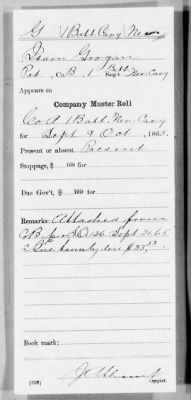 G | 1 Batt Cav | Nev.
Owen Grogan
Pvt, Co. B, 1 Batt. Reg't Nev Cav
Appears on
Company Muster Roll
Co A 1 Batt. Nev. Cav
for Sept & Oct, 1865.
Present or absent Present
Stoppage, $ 100 for
Due Gov't, $ 100 for
Remarks: Attached from
Co B per S.O. 136. Sept 21, 65
Book mark:
(358)
Copyist.